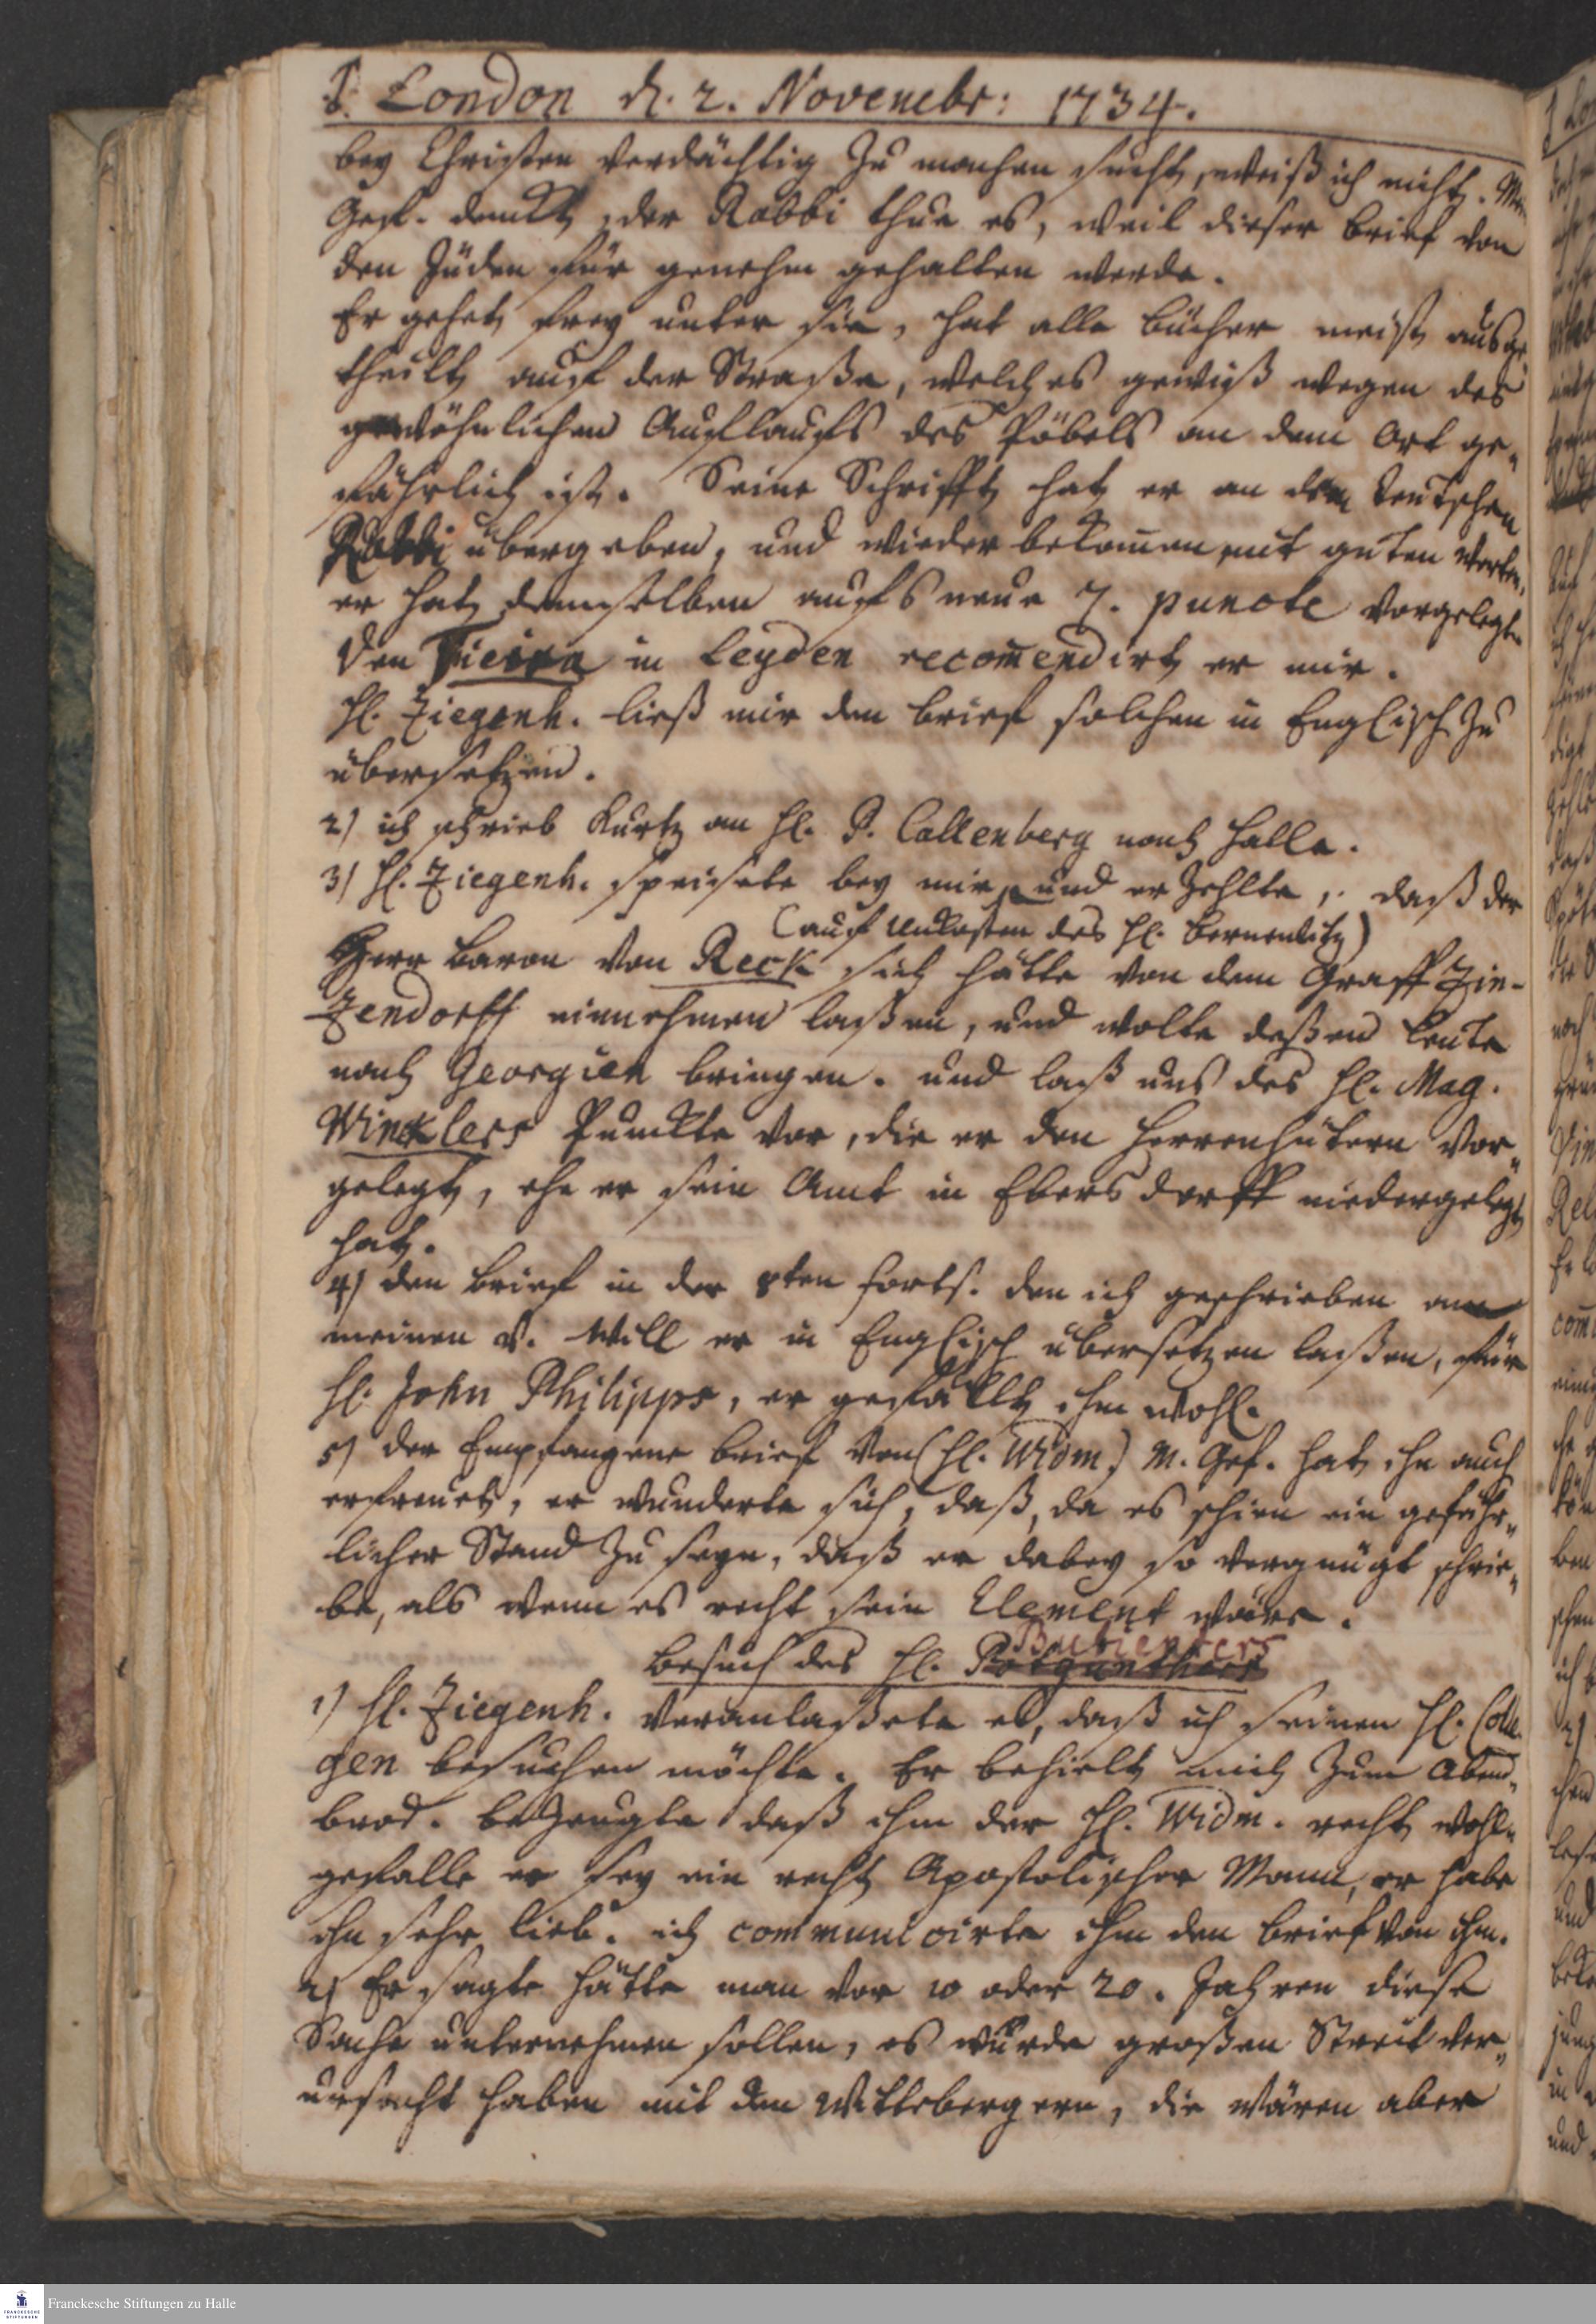 J. London d. 2. Novembr: 1734.
bey Christen verdächtig zu machen sucht, weiß ich nicht. Mein
Gef. denckt, der Rabbi thue es, weil dieser brief von
den Jüden für genehm gehalten werde.
Er gehet frey unter sie, hat alle bücher meist ausge
theilt auf der Straße, welches gewiß wegen des
gewöhnlichen Auflaufs des Pöbels an dem Ort ge-
fährlich ist. Seine Schrifft hat er an dem teutschen
Rabbi übergeben, und wieder bekommen mit guten worten,
er hat demselben aufs neue 7. puncte vorgelegt
den in Leyden recommendirt er mir.
H. Ziegenh. ließ mir den brief solchen in Englisch zu
übersetzen.
2) ich schrieb kurtz an H. P. Callenberg nach Halle.
3) H. Ziegenh. speisete bey mir und erzehlte, daß der
(auf Unkosten des H.
Herr Baron von Reck sich hätte von dem Graff Zin-
zendorff einnehmen laßen, und wolte deßen Leute
nach Georgien bringen. und laß uns des H. Mag.
Wincklers Punckte vor, die er den Herrenhutern vor-
gelegt, ehe er sein Amt in Ebersdorff niedergelegt
hat.
4) den brief in der 8ten forts. den ich geschrieben an
meinen V. will er in Englisch übersetzen laßen, für
H. John Philipps, er gefällt ihm wohl.
5) der Empfangene brief von (H. Widm.) M. Gef. hat ihn auch
erfreuet, er wunderte sich, daß, da es schien ein gefähr-
licher Stand zu seyn, daß er dabey so vergnügt schrie-
be, als wenn es recht sein Element wäre.
Besuch des H.
1) H. Ziegenh. veranlaßete es, daß ich seinen H. Colle
gen besuchen möchte. Er behielt mich zum Abend-
brod. bezeugte daß ihm der H. Widm. recht wohl-
gefalle er sey ein recht Apostolischer Mann, er habe
ihn sehr lieb. ich communicirte ihm den brief von ihm.
2) Er sagte hätte man vor 10 oder 20. Jahren diese
Sache unternehmen sollen, es würde großen Streit ver-
ursacht haben mit den Wittebergern, die wären aber
Franckesche Stiftungen zu Halle